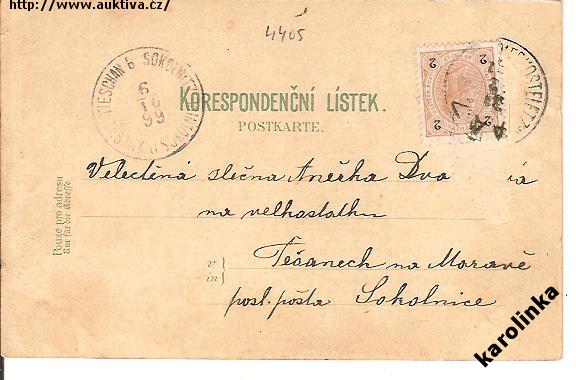 http://www.auktiva.cz/
4405
TIESCHAN b. SOKOLNITZ
6 9
99
2 2
KOSTELETZ
KORESPONDENČNÍ LÍSTEK.
POSTKARTE.
Pouze pro adresu
Nur für die Adresse
Velectěná slečna Anežka Dvo á
na velkostatku
v
in } Těšanech na Moravě
posl. pošta Sokolnice
karolinka